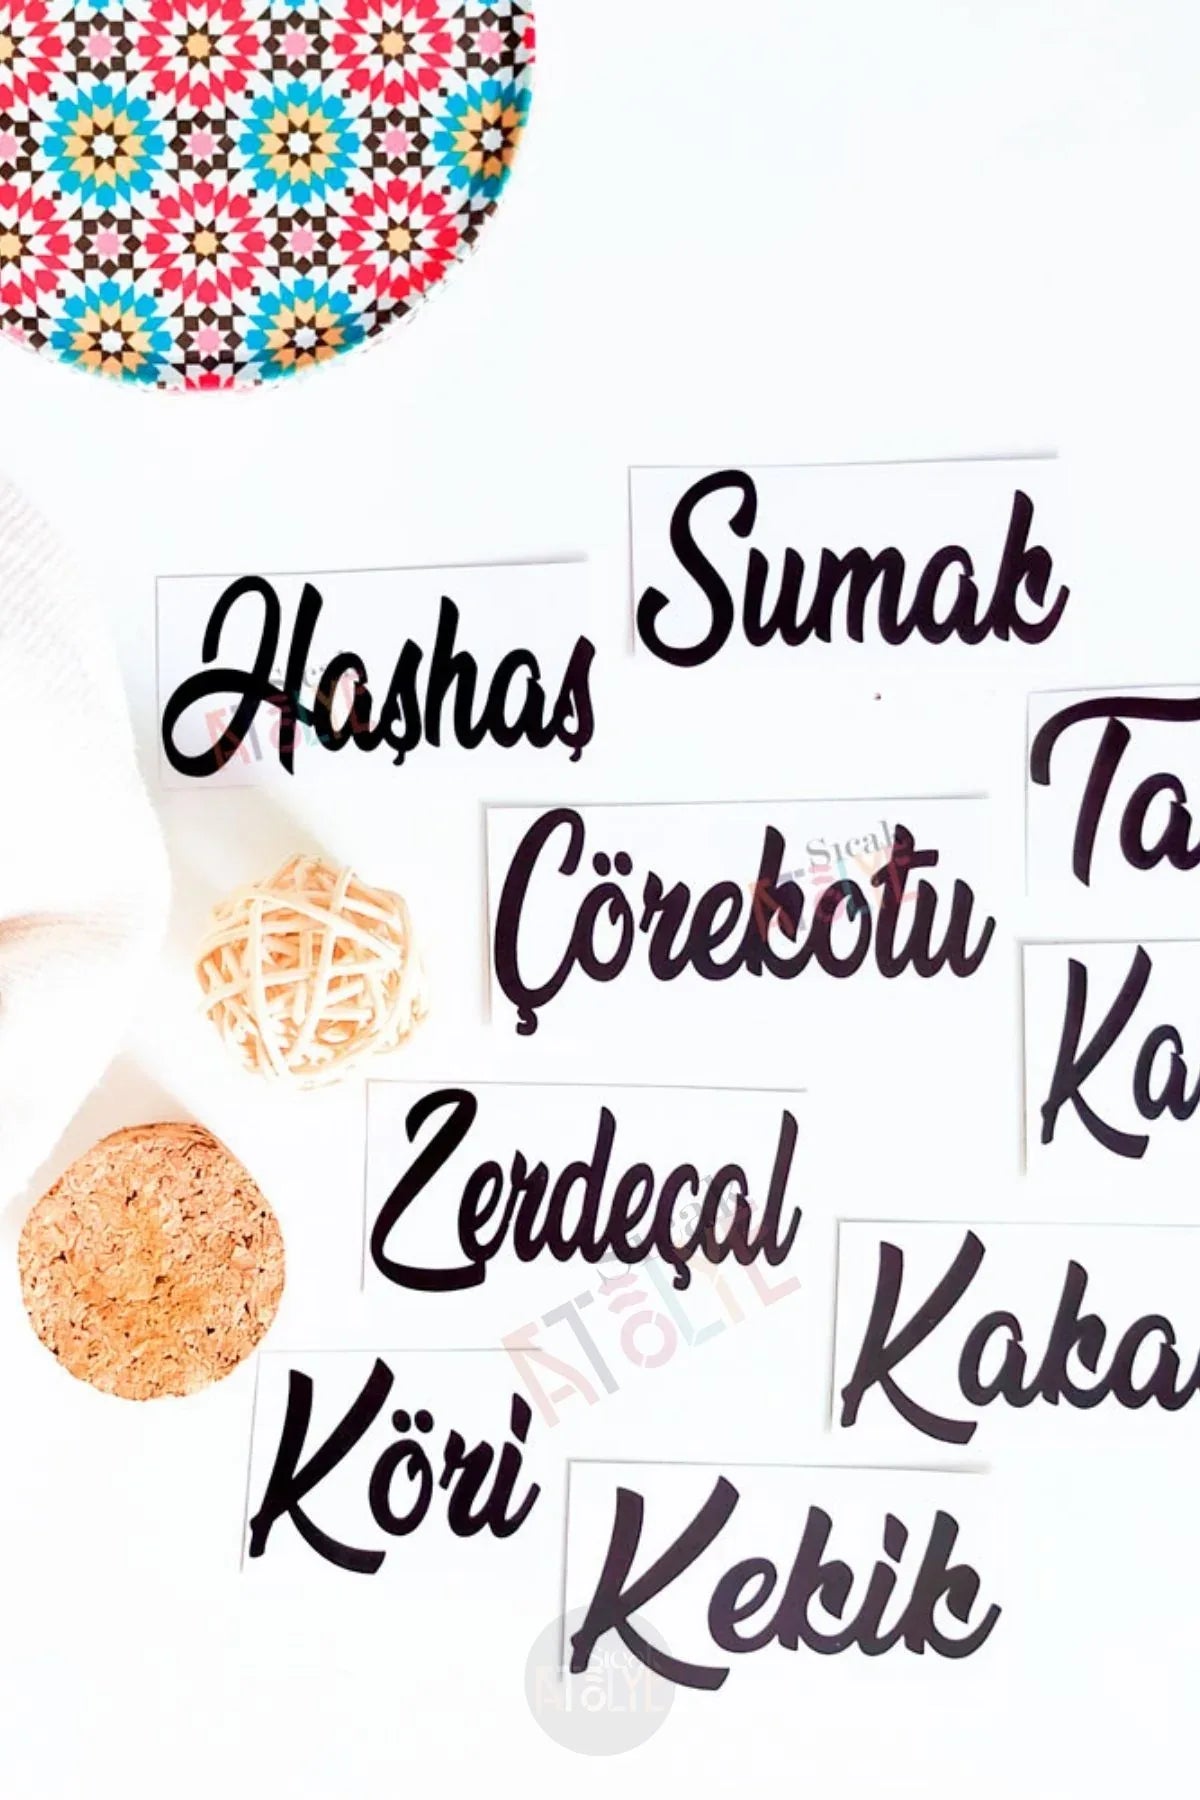 Sumak
Haşhaş
Ta
Çörekotu
Ka
Zerdeçal
Kaka
Köri
Kekik
Sıcak
ATÖLYE